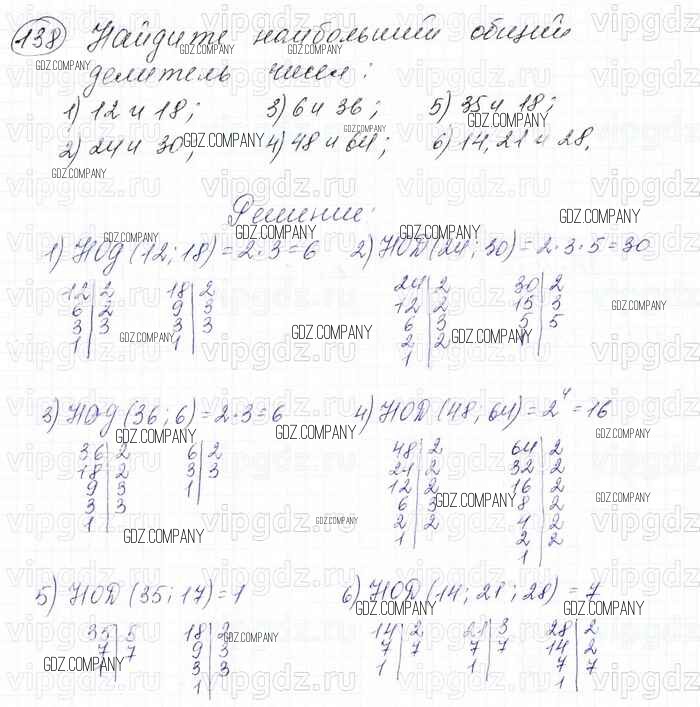 138 Найдите наибольший общий
делитель чисел:
1) 12 и 18; 3) 6 и 36; 5) 35 и 18;
2) 24 и 30; 4) 48 и 64; 6) 14, 21 и 28.
Решение:
1) НОД (12; 18) = 2·3 = 6 2) НОД (24; 30) = 2·3·5 = 30
12|2 18|2 24|2 30|2
6|2 9|3 12|2 15|3
3|3 3|3 6|3 5|5
1| 1| 2|2 1|
1|
3) НОД (36; 6) = 2·3 = 6 4) НОД (48; 64) = 2⁴ = 16
36|2 6|2 48|2 64|2
18|2 3|3 24|2 32|2
9|3 1| 12|2 16|2
3|3 6|3 8|2
1| 2|2 4|2
1| 2|2
1|
5) НОД (35; 17) = 1 6) НОД (14; 21; 28) = 7
35|5 18|2 14|2 21|3 28|2
7|7 9|3 7|7 7|7 14|2
3|3 1| 1| 7|7
1| 1|
GDZ.COMPANY
vipgdz.ru